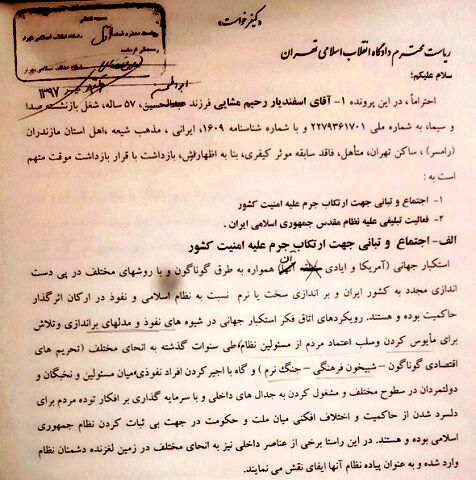 «کیفرخواست»
ریاست محترم دادگاه انقلاب اسلامی تهران
سلام علیکم؛
۱۳۹۷
احتراماً، در این پرونده ۱- آقای اسفندیار رحیم مشایی فرزند حسین، ۵۷ ساله، شغل بازنشسته صدا
و سیما، به شماره ملی ۲۲۷۹۳۶۱۷۰۱ و با شماره شناسنامه ۱۶۰۹، ایرانی ، مذهب شیعه ،اهل استان مازندران
(رامسر) ، ساکن تهران، متأهل، فاقد سابقه موثر کیفری، بنا به اظهارش، بازداشت با قرار بازداشت موقت متهم
است به :
۱- اجتماع و تبانی جهت ارتکاب جرم علیه امنیت کشور
۲- فعالیت تبلیغی علیه نظام مقدس جمهوری اسلامی ایران .
الف- اجتماع و تبانی جهت ارتکاب جرم علیه امنیت کشور
استکبار جهانی (آمریکا و ایادی آن) همواره به طرق گوناگون و با روشهای مختلف در پی دست
اندازی مجدد به کشور ایران و بر اندازی سخت یا نرم نسبت به نظام اسلامی و نفوذ در ارکان اثرگذار
حاکمیت بوده و هستند. رویکردهای اتاق فکر استکبار جهانی در شیوه های نفوذ و مدلهای براندازی وتلاش
برای مأیوس کردن وسلب اعتماد مردم از مسئولین نظام(طی سنوات گذشته به انحای مختلف (تحریم های
اقتصادی گوناگون – شبیخون فرهنگی – جنگ نرم ) و گاه با اجیر کردن افراد نفوذی)میان مسئولین و نخبگان و
دولتمردان در سطوح مختلف و مشغول کردن به جدال های داخلی و با سرمایه گذاری بر افکار توده مردم برای
دلسرد شدن از حاکمیت و اختلاف افکنی میان ملت و حکومت در جهت بی ثبات کردن نظام جمهوری
اسلامی بوده و هستند. در این راستا برخی از عناصر داخلی نیز به انحای مختلف در زمین لغزنده دشمنان نظام
وارد شده و به عنوان پیاده نظام آنها ایفای نقش می نمایند.